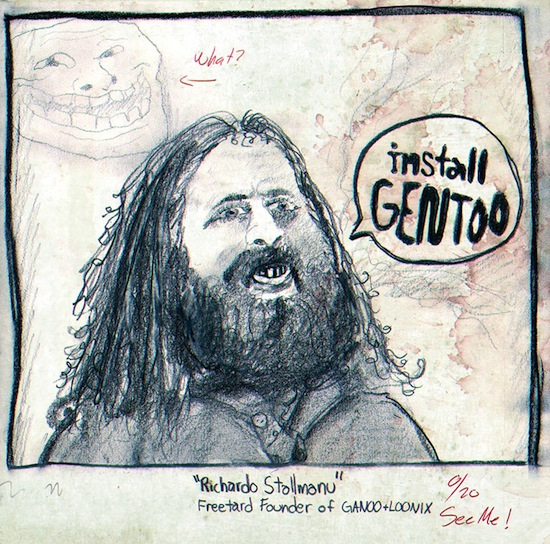 What?
install
GENTOO
"Richardo Stallmanu"
Freetard Founder of GANOO+LOONIX
0/20
See Me!